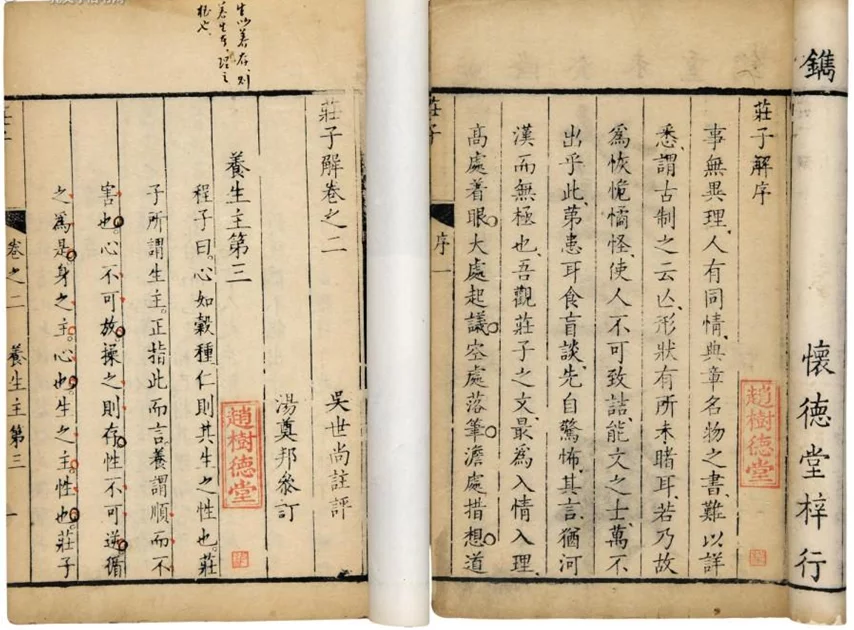 鐫
懷德堂梓行
莊子解序
趙樹德堂
事無異理、人有同情、典章名物之書、難以詳
悉、謂古制之云亾、形狀有所未睹耳、若乃故
為恢恑憰怪、使人不可致詰、能文之士、萬不
出乎此、第患耳食盲談、先自驚怖、其言猶河
漢而無極也、吾觀莊子之文、最為入情入理、
高處着眼大處起議空處落筆澹處措想道
莊子
序 一
莊子解卷之二
吳世尚註評
湯奠邦參訂
養生主第三
趙樹德堂
生以養存、則
養生者、理之
極也、
程子曰。心如穀種仁則其生之性也。莊
子所謂生主。正指此而言。養謂順而不
害也。心不可放操之則存性不可逆循
之為是。身之主。心也。生之主。性也。莊子
卷之二 養生主第三 一